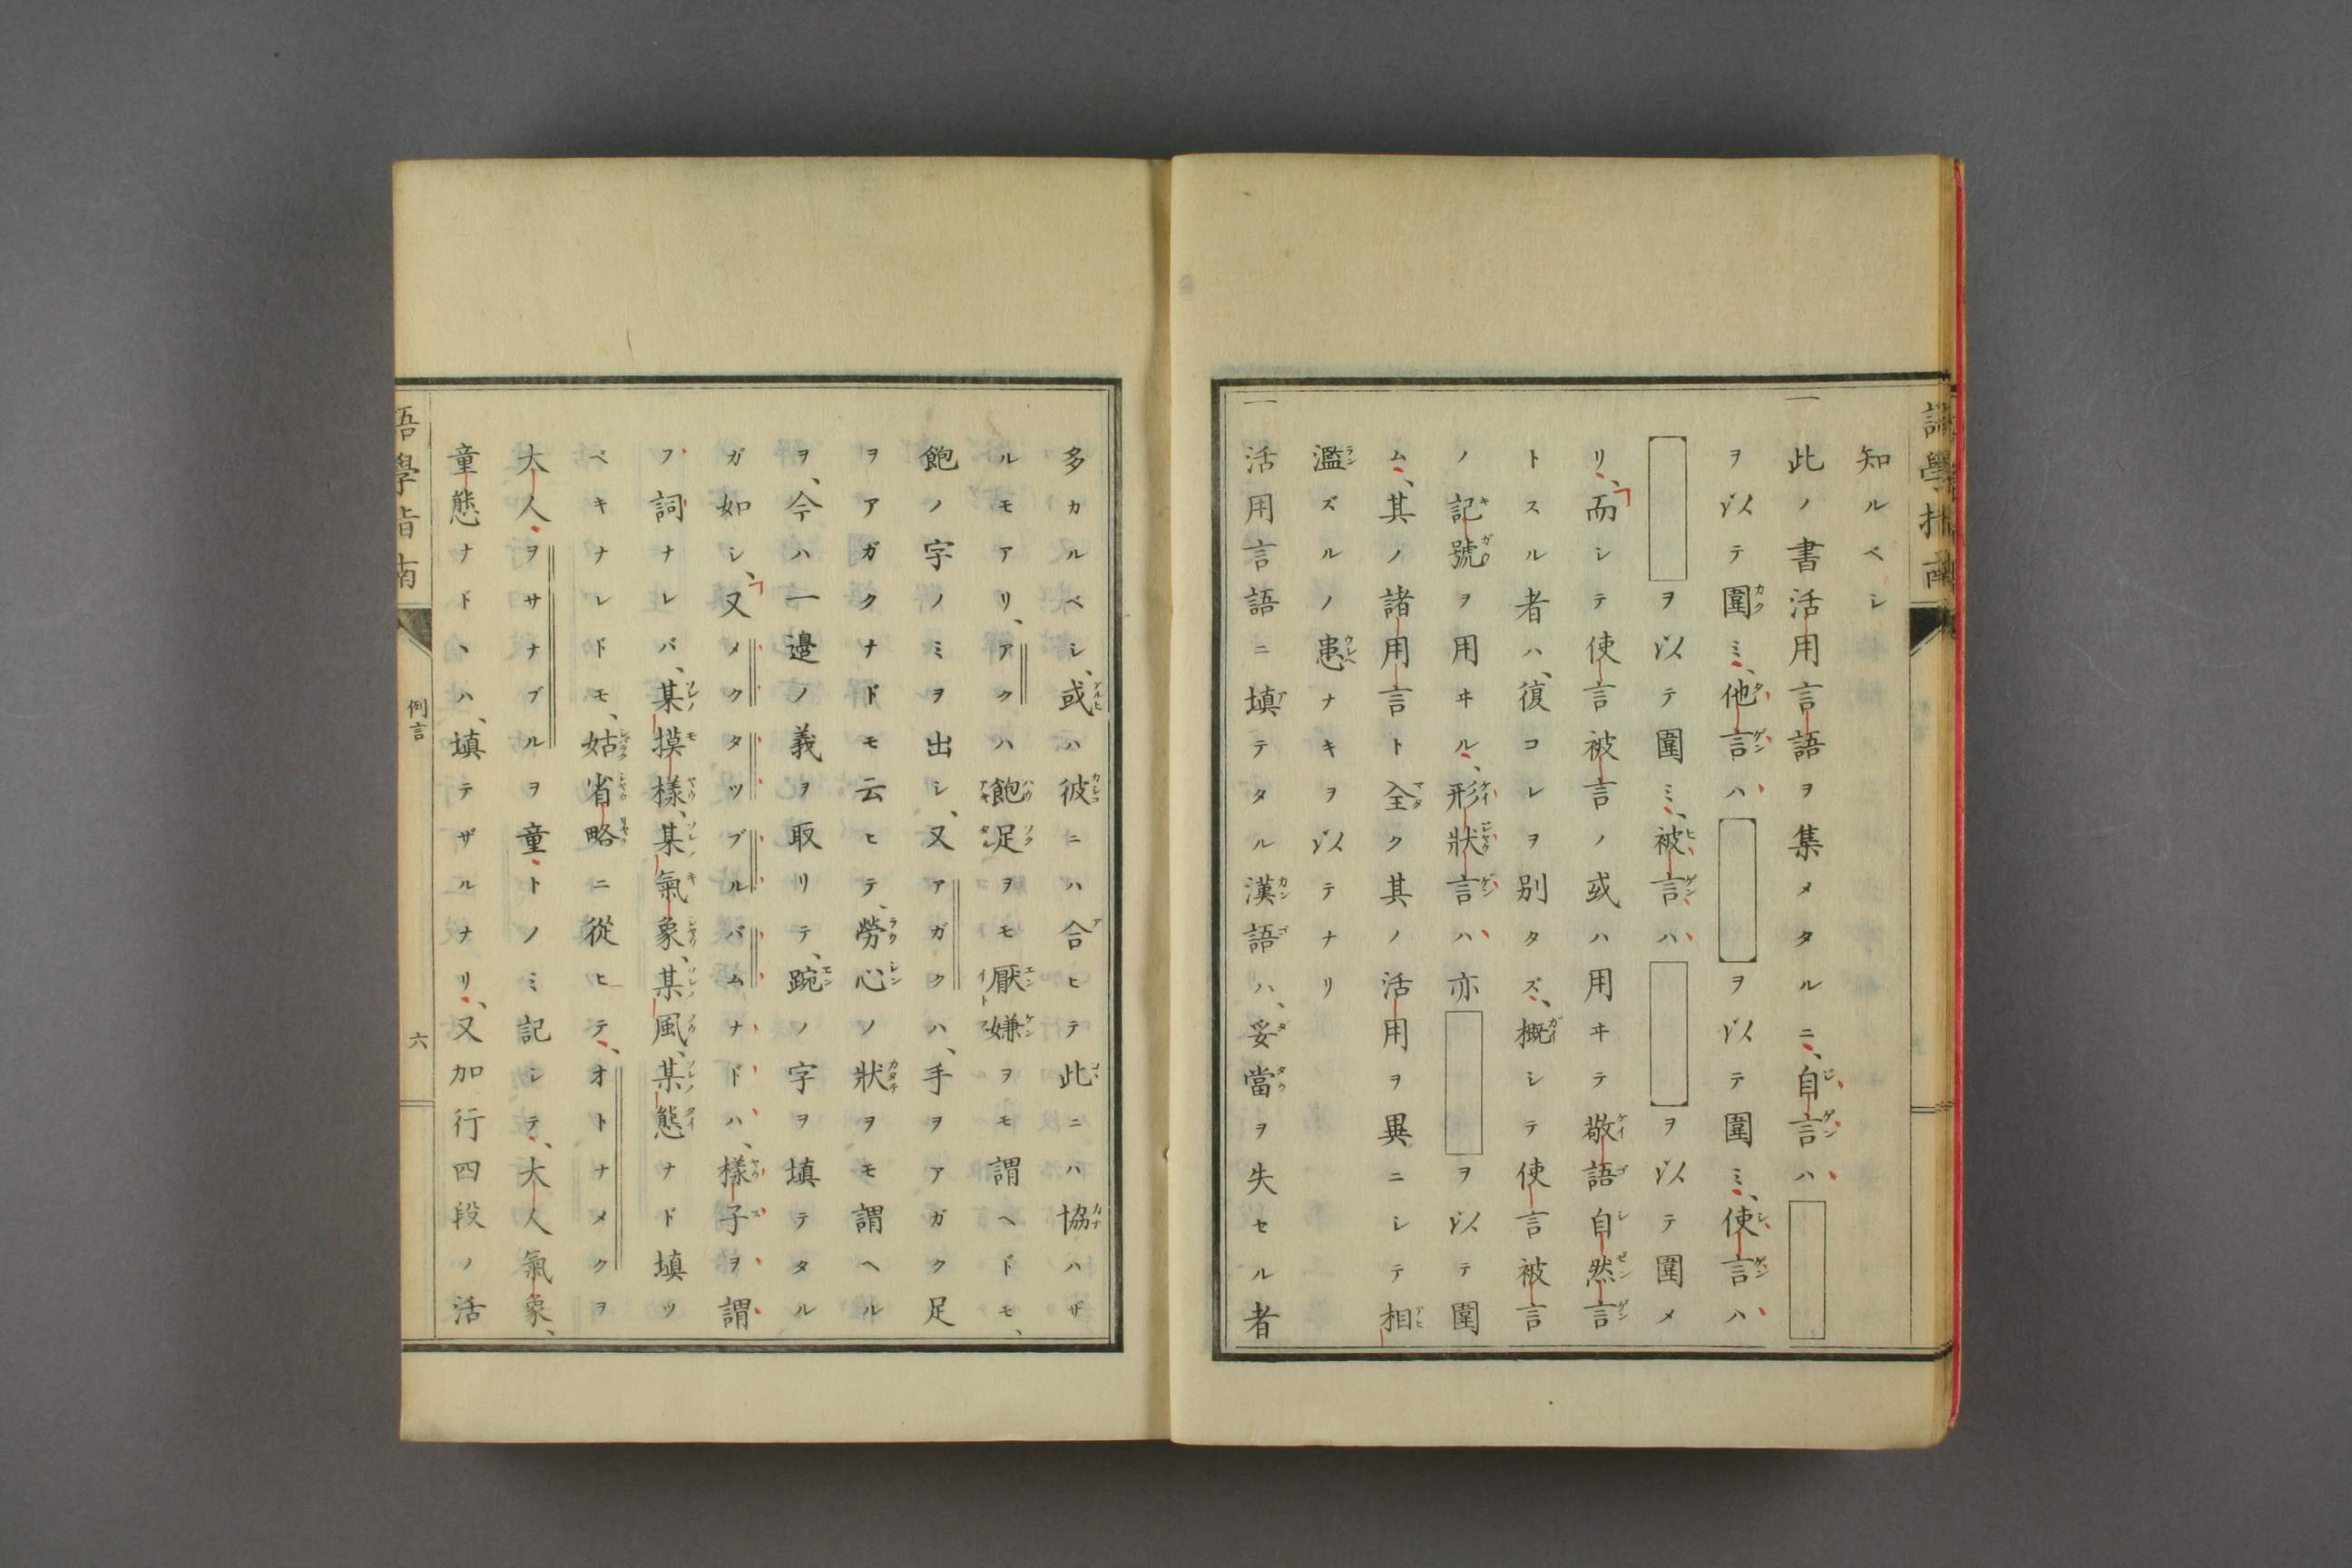 語學指南
知ルベシ
一此ノ書活用言語ヲ集メタルニ、自言ハ
ヲ以テ圍ミ、他言ハ ヲ以テ圍ミ、使言ハ
ヲ以テ圍ミ、被言ハ ヲ以テ圍メ
リ、而シテ使言被言ノ或ハ用ヰテ敬語自然言
トスル者ハ、復コレヲ別タズ、概シテ使言被言
ノ記號ヲ用ヰル、形狀言ハ亦 ヲ以テ圍
ム、其ノ諸用言ト全ク其ノ活用ヲ異ニシテ相
濫ズルノ患ナキヲ以テナリ
一活用言語ニ填テタル漢語ハ、妥當ヲ失セル者
多カルベシ、或ハ彼ニハ合ヒテ此ニハ協ハザ
ルモアリ、アクハ飽足ヲモ厭嫌ヲモ謂ヘドモ、
飽ノ字ノミヲ出シ、又アガクハ、手ヲアガク足
ヲアガクナドモ云ヒテ、勞心ノ狀ヲモ謂ヘル
ヲ、今ハ一邉ノ義ヲ取リテ、踠ノ字ヲ填テタル
ガ如シ、又メクタツブルバムナドハ、樣子ヲ謂
フ詞ナレバ、某摸樣、某氣象、某風、某態ナド填ツ
ベキナレドモ、姑省略ニ從ヒテ、オトナメクヲ
大人ヲサナブルヲ童トノミ記シテ、大人氣象、
童態ナドヽハ、填テザルナリ、又加行四段ノ活
語學指南
例言
六